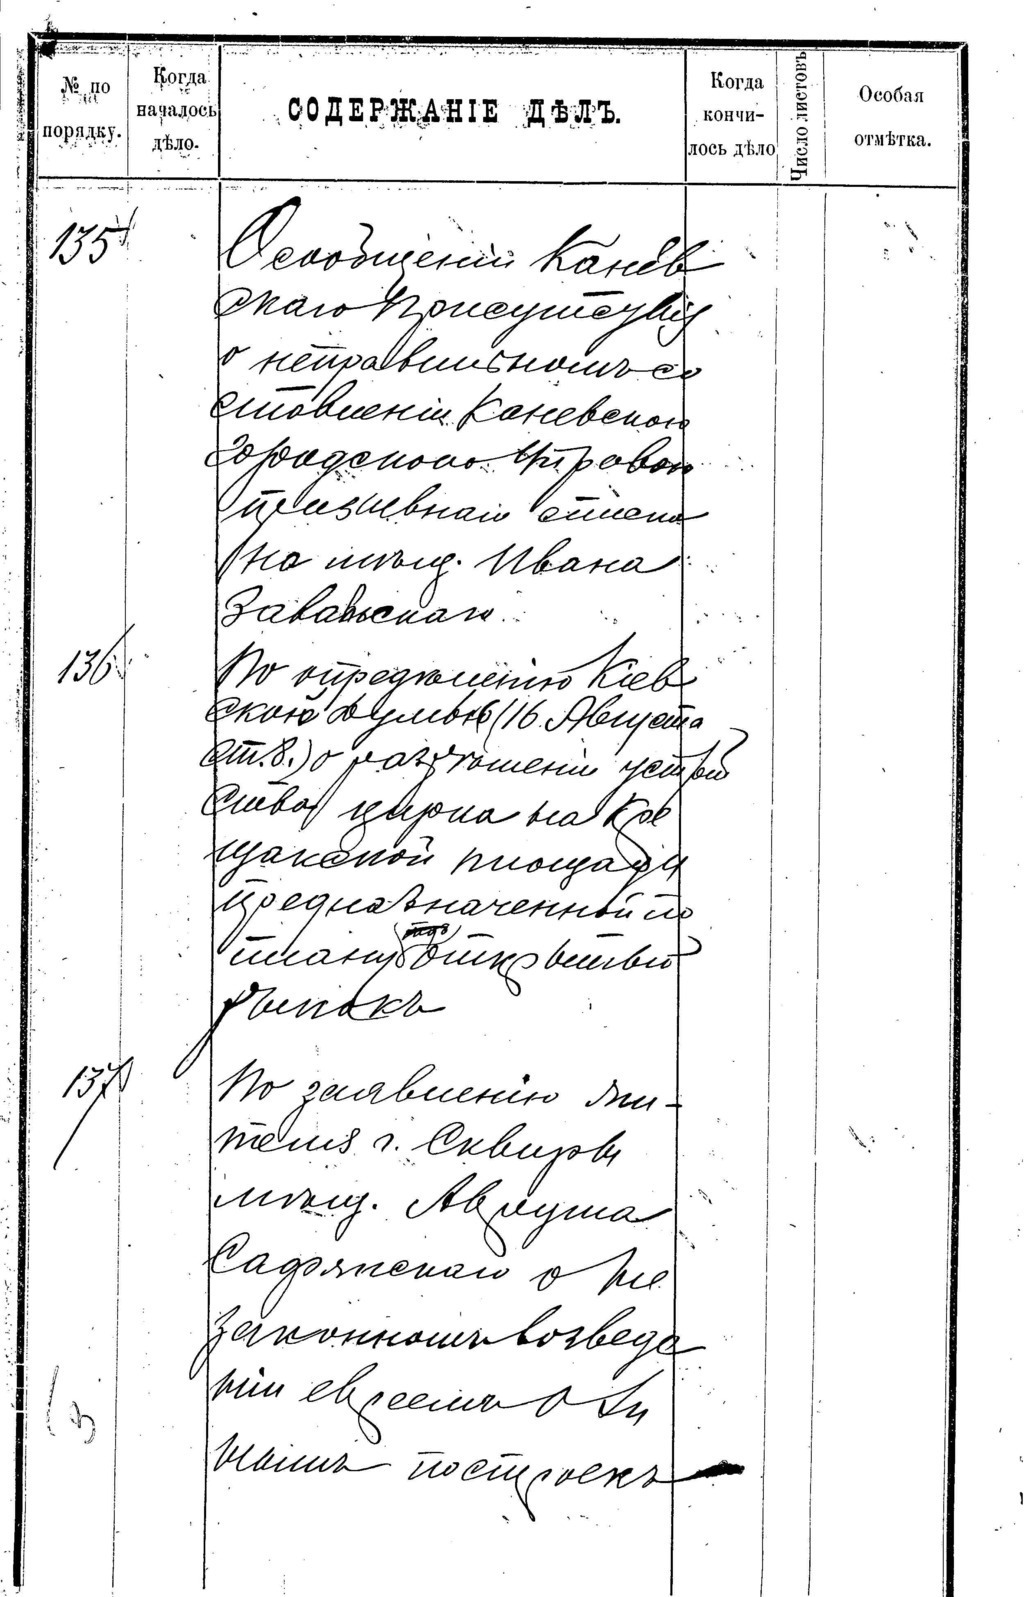 № по порядку.
Когда началось дѣло.
СОДЕРЖАНІЕ ДѢЛЪ.
Когда кончи-лось дѣло
Число листовъ
Особая отмѣтка.
135
О сообщеніи Канев
скаго Присутствія
о неправильномъ со
ставленіи Каневскою
Городскою Управою
призывнаго списка
на мѣщ. Ивана
136
По опредѣленію Кіев
ской Думы (16 Августа
ст. 8.) о разрѣшеніи устрой
ства цирка на Кре
щатской площади
предназначенной по
плану подъ открытый
рынокъ
137
По заявленію жи-
теля г. Сквиры
мѣщ. Аврума
о не
законномъ возведе
ніи евреемъ
построекъ